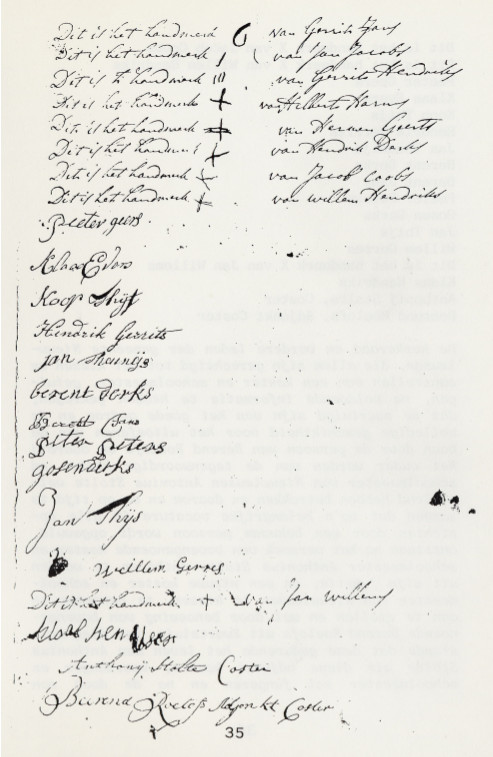 Dit is het handmerk van Gerrit Jans
Dit is het handmerk van Jan Jacobs
Dit is t' handmerk van Gerrits Hendriks
Dit is het handmerk van Hilbert Harms
Dit is het handmerk van Hermen Geerts
Dit is het handmerk van Hendrik Derks
Dit is het handmerk van Jacob Coobs
Dit is het handmerk van willem Hendriks
pieter geers
Klaas
Koop Thijs
Hendrik Gerrits
jan theunijs
berent derks
Berent Jans
piter piters
gosen derks
Jan Thijs
Welllem Gerres
Dit is het handmerk + van Jan willems
Anthonij Stolte Coster
Beerend Roelofs Adjonkt Coster
35